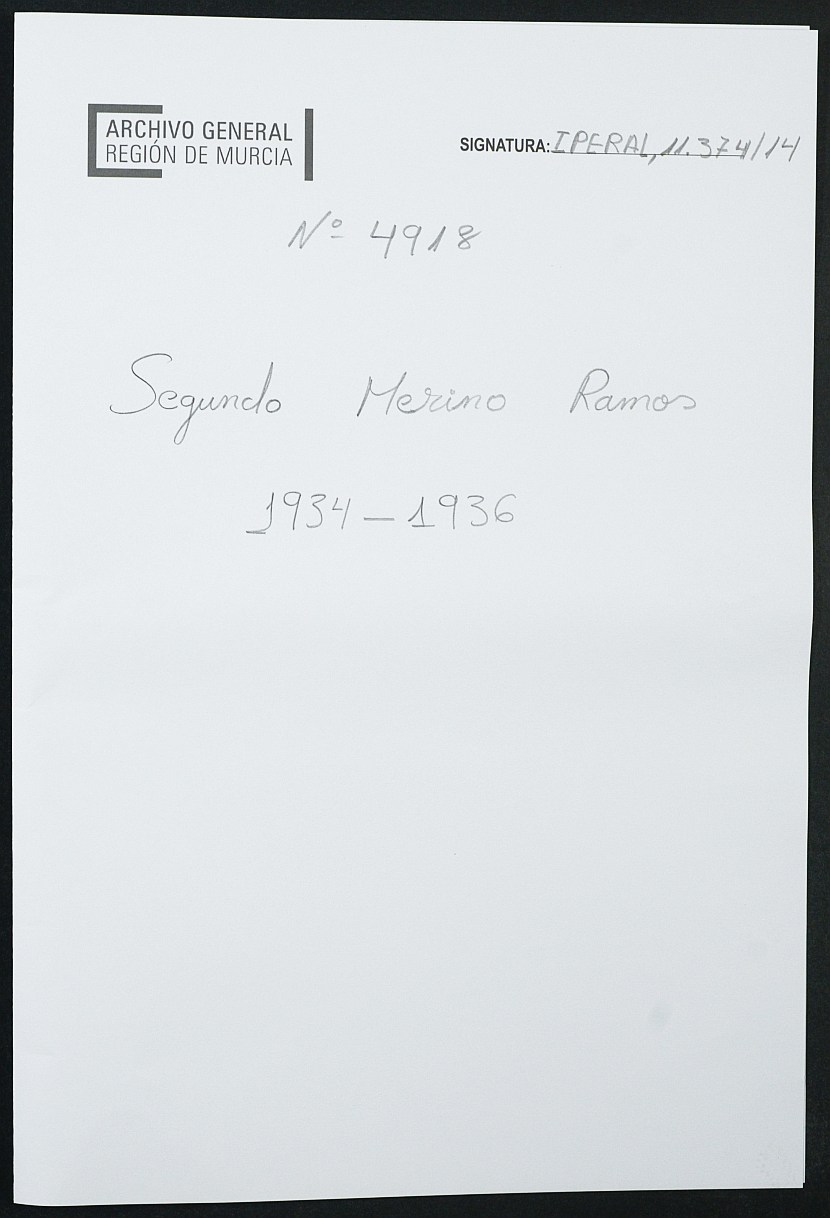 ARCHIVO GENERAL
REGIÓN DE MURCIA
SIGNATURA: IPERAL, 11.374/14
Nº 4918
Segundo Merino Ramos
1934 — 1936